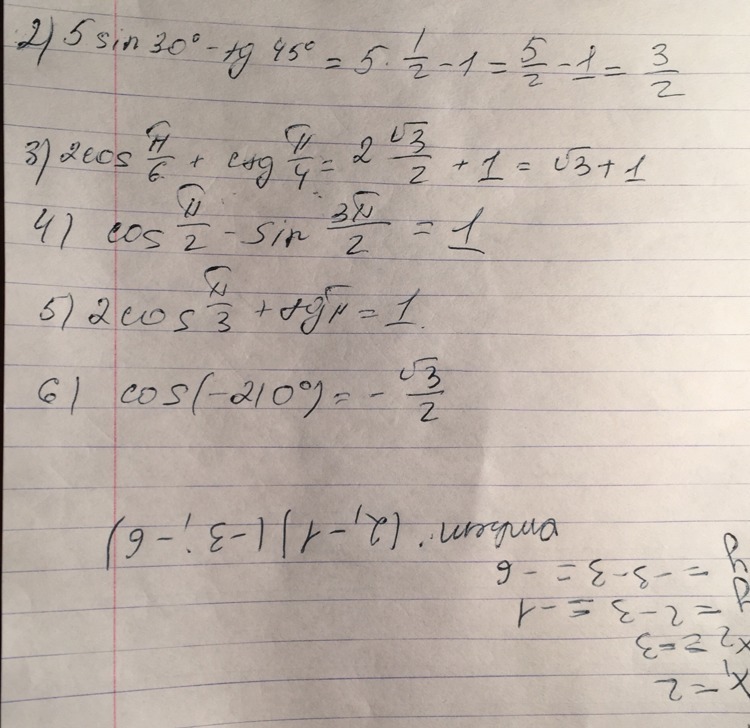 2) 5 sin 30° - tg 45° = 5 · 1/2 - 1 = 5/2 - 1 = 3/2
3) 2cos π/6 + ctg π/4 = 2 √3/2 + 1 = √3 + 1
4) cos π/2 - sin 3π/2 = 1
5) 2cos π/3 + tg π = 1.
6) cos(-210°) = - √3/2
x₁ = 2
x₂ = -3
= 2-3 = -1
= -3-3 = -6
ответ: (2; -1) (-3; -6)